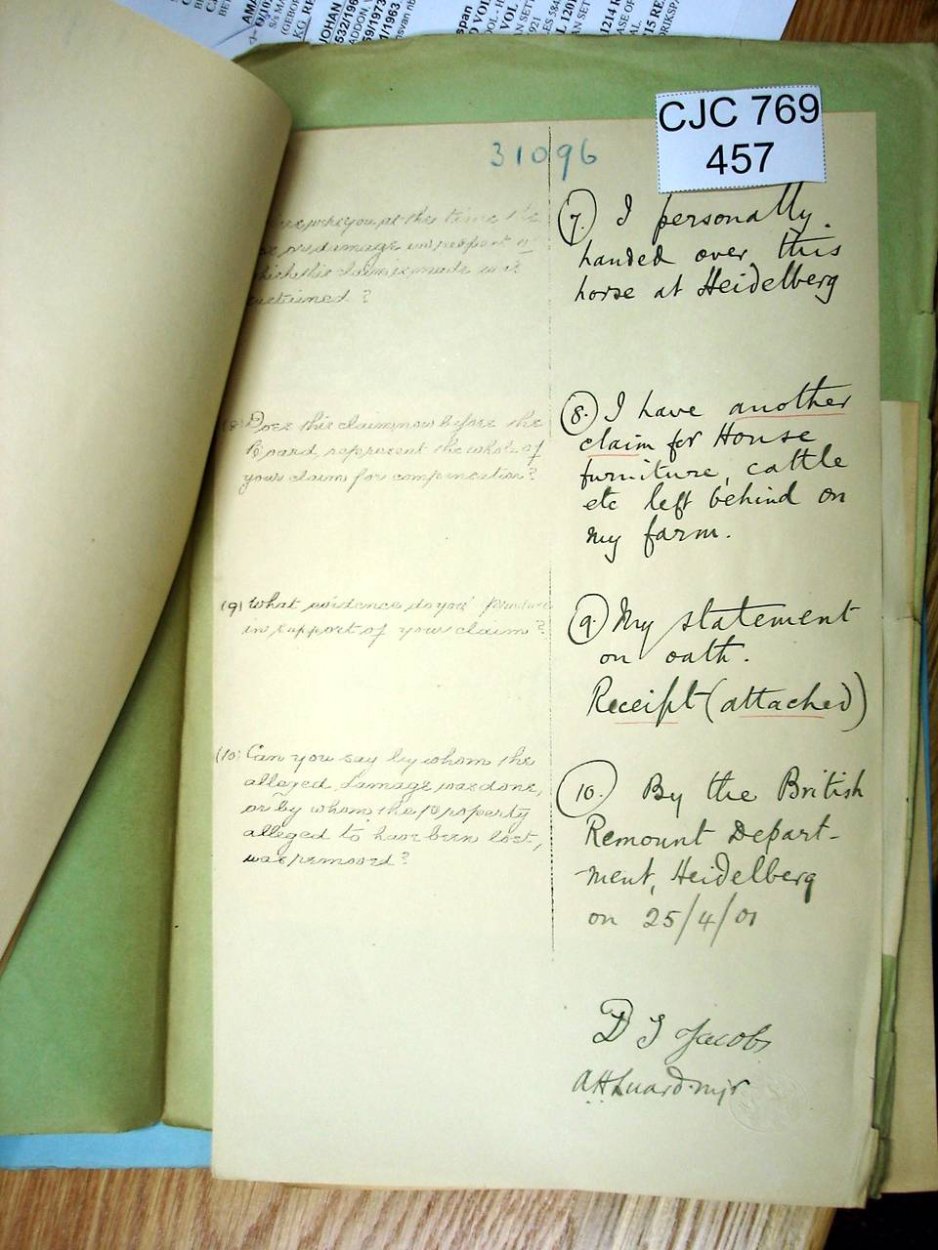 CJC 769
457
31096
where you at the time the
damage in respect of
which this claim is made was
sustained?
(7.) I personally
handed over this
horse at Heidelberg
(8) Does this claim now before the
Board represent the whole of
your claim for compensation?
(8.) I have another
claim for House
furniture, cattle
etc left behind on
my farm.
(9) What evidence do you produce
in support of your claim?
(9.) My statement
on oath.
Receipt (attached)
(10) Can you say by whom the
alleged damage was done,
or by whom the property
alleged to have been lost,
was removed?
(10.) By the British
Remount Depart-
-ment, Heidelberg
on 25/4/01
D J Jacobs